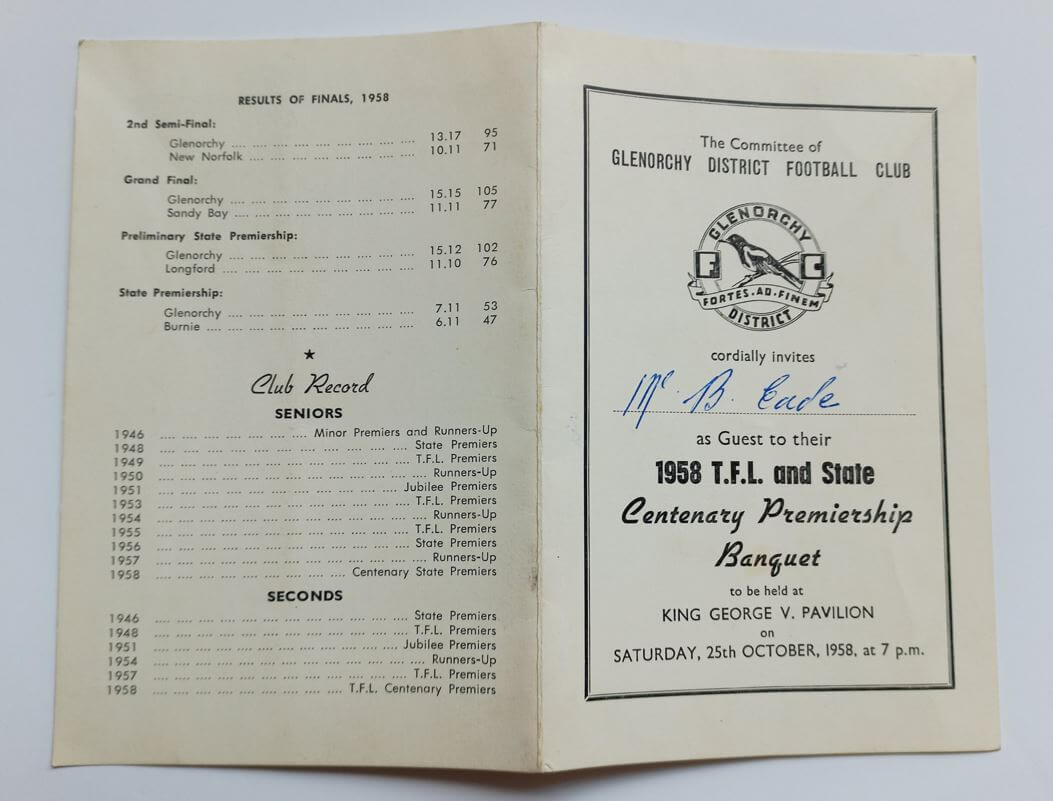 RESULTS OF FINALS, 1958
2nd Semi-Final:
Glenorchy .... .... .... .... .... .... .... .... .... 13.17 95
New Norfolk .... .... .... .... .... .... .... .... 10.11 71
Grand Final:
Glenorchy .... .... .... .... .... .... .... .... .... 15.15 105
Sandy Bay .... .... .... .... .... .... .... .... .... 11.11 77
Preliminary State Premiership:
Glenorchy .... .... .... .... .... .... .... .... .... 15.12 102
Longford .... .... .... .... .... .... .... .... .... 11.10 76
State Premiership:
Glenorchy .... .... .... .... .... .... .... .... .... 7.11 53
Burnie .... .... .... .... .... .... .... .... .... .... 6.11 47
★
Club Record
SENIORS
1946 .... .... .... .... .... .... .... Minor Premiers and Runners-Up
1948 .... .... .... .... .... .... .... .... .... .... .... State Premiers
1949 .... .... .... .... .... .... .... .... .... .... .... T.F.L. Premiers
1950 .... .... .... .... .... .... .... .... .... .... .... .... Runners-Up
1951 .... .... .... .... .... .... .... .... .... .... Jubilee Premiers
1953 .... .... .... .... .... .... .... .... .... .... .... T.F.L. Premiers
1954 .... .... .... .... .... .... .... .... .... .... .... .... Runners-Up
1955 .... .... .... .... .... .... .... .... .... .... .... T.F.L. Premiers
1956 .... .... .... .... .... .... .... .... .... .... .... State Premiers
1957 .... .... .... .... .... .... .... .... .... .... .... .... Runners-Up
1958 .... .... .... .... .... .... .... .... Centenary State Premiers
SECONDS
1946 .... .... .... .... .... .... .... .... .... .... .... State Premiers
1948 .... .... .... .... .... .... .... .... .... .... .... T.F.L. Premiers
1951 .... .... .... .... .... .... .... .... .... .... Jubilee Premiers
1954 .... .... .... .... .... .... .... .... .... .... .... .... Runners-Up
1957 .... .... .... .... .... .... .... .... .... .... .... T.F.L. Premiers
1958 .... .... .... .... .... .... .... .... T.F.L. Centenary Premiers
The Committee of
GLENORCHY DISTRICT FOOTBALL CLUB
GLENORCHY
F C
FORTES·AD·FINEM
DISTRICT
cordially invites
Mr. B. Eade
as Guest to their
1958 T.F.L. and State
Centenary Premiership
Banquet
to be held at
KING GEORGE V. PAVILION
on
SATURDAY, 25th OCTOBER, 1958, at 7 p.m.